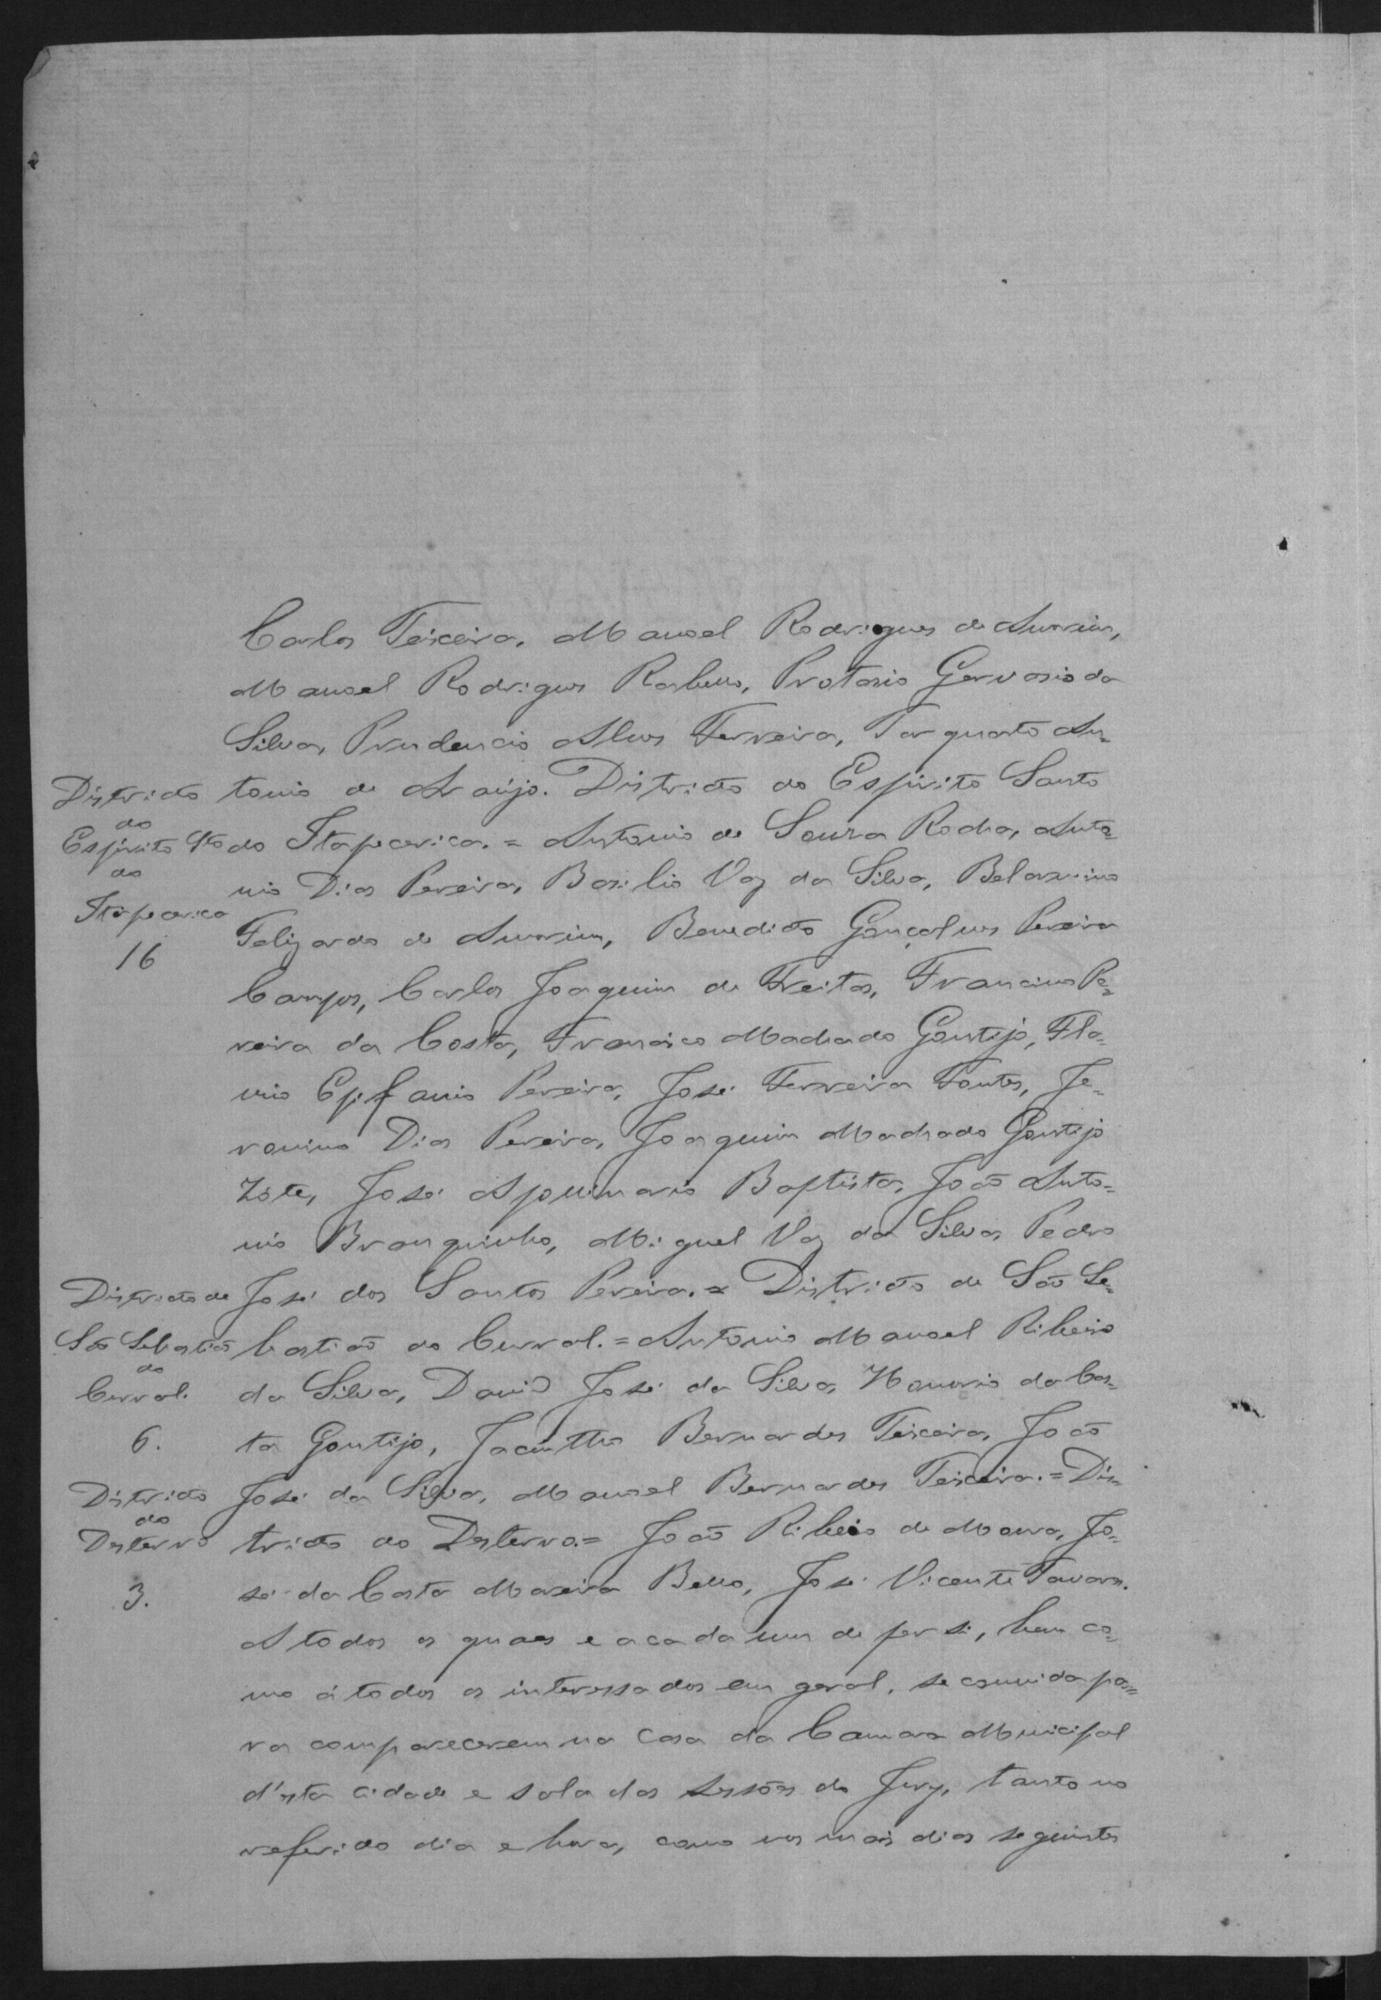 Carlos Teixeira, Manoel Rodrigues de Amorim,
Manoel Rodrigues Rabello, Protasio Gervasio da
Silva, Prudencio Alves Ferreira, Torquato An-
Districto tonio de Araújo. Districto do Espirito Santo
do
Espirito Sto do Itapecerica. = Antonio de Souza Rocha, Anto-
do
nio Dias Pereira, Basilio Vaz da Silva, Belarmino
Itapecerica
Felizardo de Amorim, Benedicto Gonçalves Pereira
16
Campos, Carlos Joaquim de Freitas, Francisco Pe-
reira da Costa, Francisco Machado Gontijo, Fla-
vio Epifanio Pereira, José Ferreira Fontes, Je-
ronimo Dias Pereira, Joaquim Machado Gontijo
Zóte, José Apollinario Baptista, João Anto-
nio Branquinho, Miguel Vaz da Silva, Pedro
Districto de José dos Santos Pereira. = Districto de São Se-
São Sebastião bastião do Curral. = Antonio Manoel Ribeiro
do
Curral. da Silva, David José da Silva, Honorio da Cos-
6. ta Gontijo, Jacintho Bernardes Teixeira, João
Districto José da Silva, Manoel Bernardes Teixeira. = Dis-
do
Desterro tricto do Desterro. = João Ribeiro de Moura, Jo-
3. sé da Costa Moreira Bello, José Vicente Tavares.
A todos os quaes e a cada um de per si, bem co-
mo á todos os interessados em geral, se convida pa-
ra comparecerem na casa da Camara Municipal
d'esta cidade e sala das sessões do Jury, tanto no
referido dia e hora, como nos mais dias seguintes